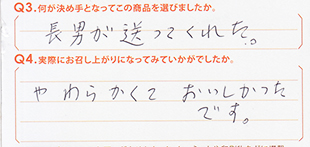 Q3.何が決め手となってこの商品を選びましたか。
長男が送ってくれた。
Q4.実際にお召し上がりになってみていかがでしたか。
やわらかくて おいしかった
です。